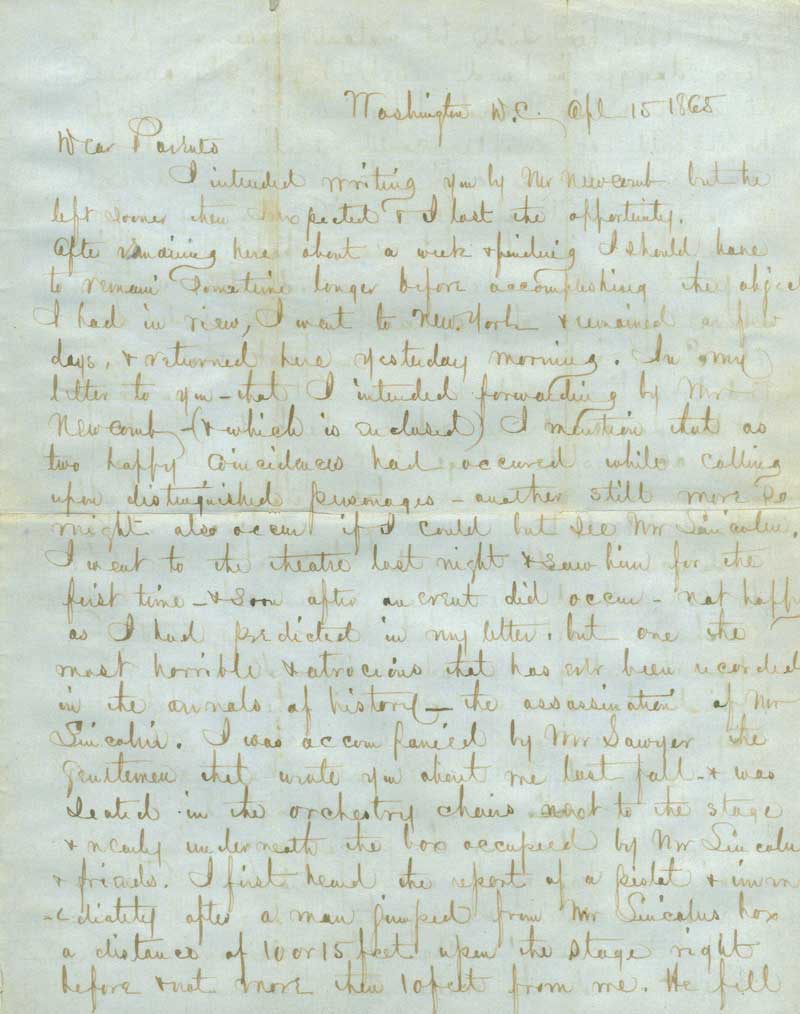 Washington D.C. Apl 15 1865
Dear Parents
I intended writing you by Mr Newcomb but he
left sooner then I expected & I lost the opportunity.
After remaining here about a week & finding I should have
to remain sometime longer before accomplishing the object
I had in view, I went to New York & remained a few
days, & returned here yesterday morning. In my
letter to you - that I intended forwarding by Mr
Newcomb - (& which is enclosed) I mention that as
two happy coincidences had occured while calling
upon distinguished personages - another still more so
might also occur if I could but see Mr Lincoln.
I went to the theatre last night & saw him for the
first time - & soon after an event did occur - not happy
as I had predicted in my letter, but one the
most horrible & atrocious that has ever been recorded
in the annals of history - the assassination of Mr
Lincoln. I was accompanied by Mr Sawyer the
gentlemen that wrote you about me last fall - & was
seated in the orchestry chairs next to the stage
& nearly underneath the box occupied by Mr Lincoln
& friends. I first heard the report of a pistol & imm
-ediately after a man jumped from Mr Lincolns box
a distance of 10 or 15 feet upon the stage right
before & not more then 10 feet from me. He fell